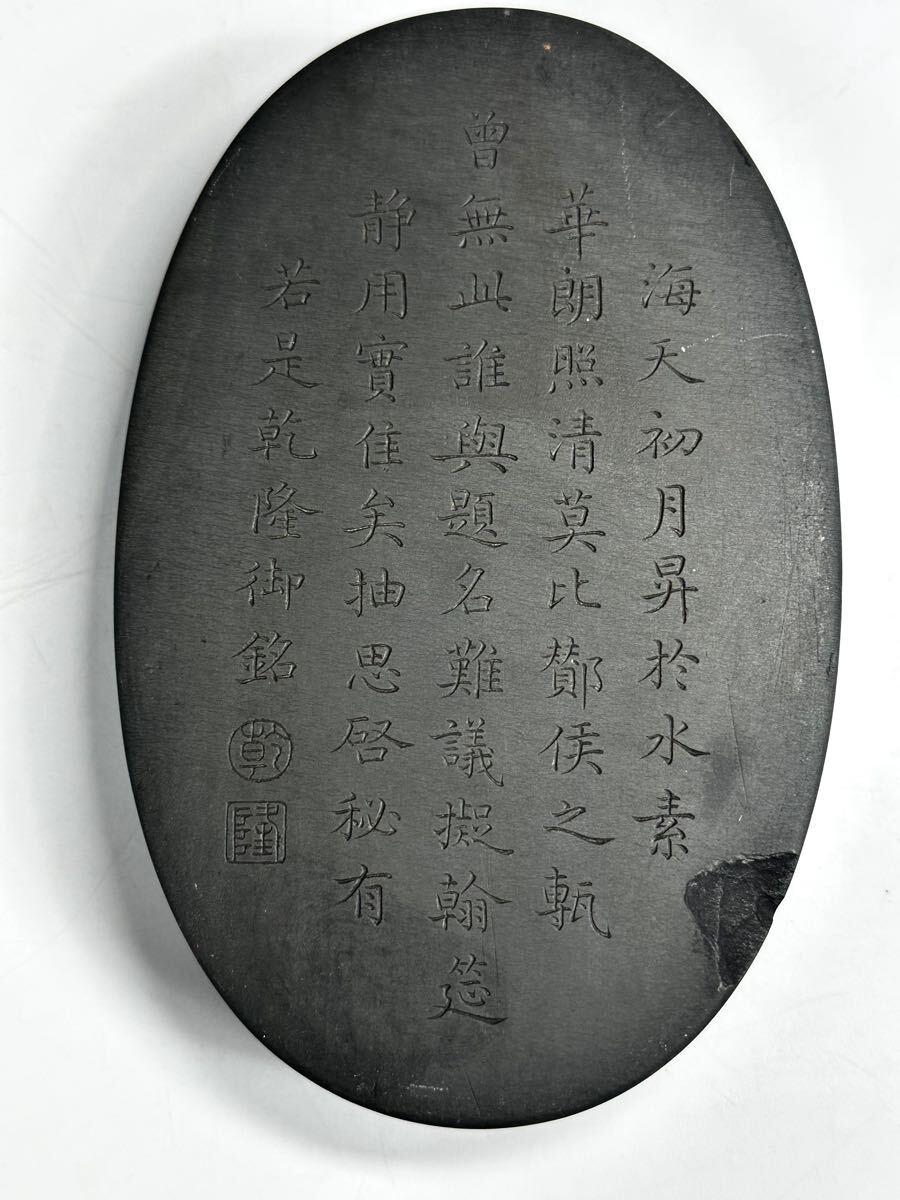 海天初月昇於水素
華朗照清莫比鄼侯之甎
曾無此誰與題名難議擬翰筵
静用實隹矣抽思啓秘有
若是乾隆御銘
乾
隆